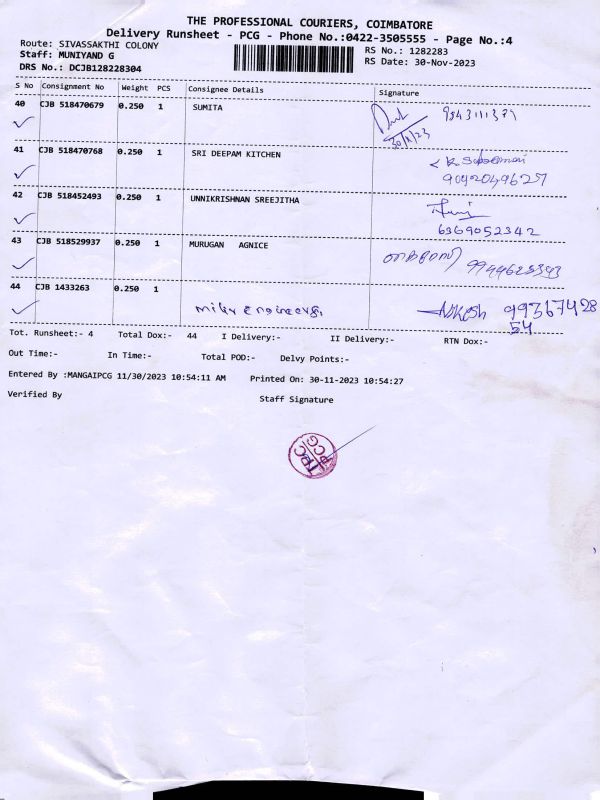 THE PROFESSIONAL COURIERS, COIMBATORE
Delivery Runsheet - PCG - Phone No.:0422-3505555 - Page No.:4
Route: SIVASSAKTHI COLONY
RS No.: 1282283
Staff: MUNIYAND G
RS Date: 30-Nov-2023
DRS No.: DCJB128228304
S No Consignment No Weight PCS Consignee Details Signature
40 CJB 518470679 0.250 1 SUMITA 9843111371
30/11/23
41 CJB 518470768 0.250 1 SRI DEEPAM KITCHEN
9092049627
42 CJB 518452493 0.250 1 UNNIKRISHNAN SREEJITHA
6369052342
43 CJB 518529937 0.250 1 MURUGAN AGNICE 9944625343
44 CJB 1433263 0.250 1
99367428
54
Tot. Runsheet:- 4 Total Dox:- 44 I Delivery:- II Delivery:- RTN Dox:-
Out Time:- In Time:- Total POD:- Delvy Points:-
Entered By :MANGAIPCG 11/30/2023 10:54:11 AM Printed On: 30-11-2023 10:54:27
Verified By Staff Signature
TPC
PCG